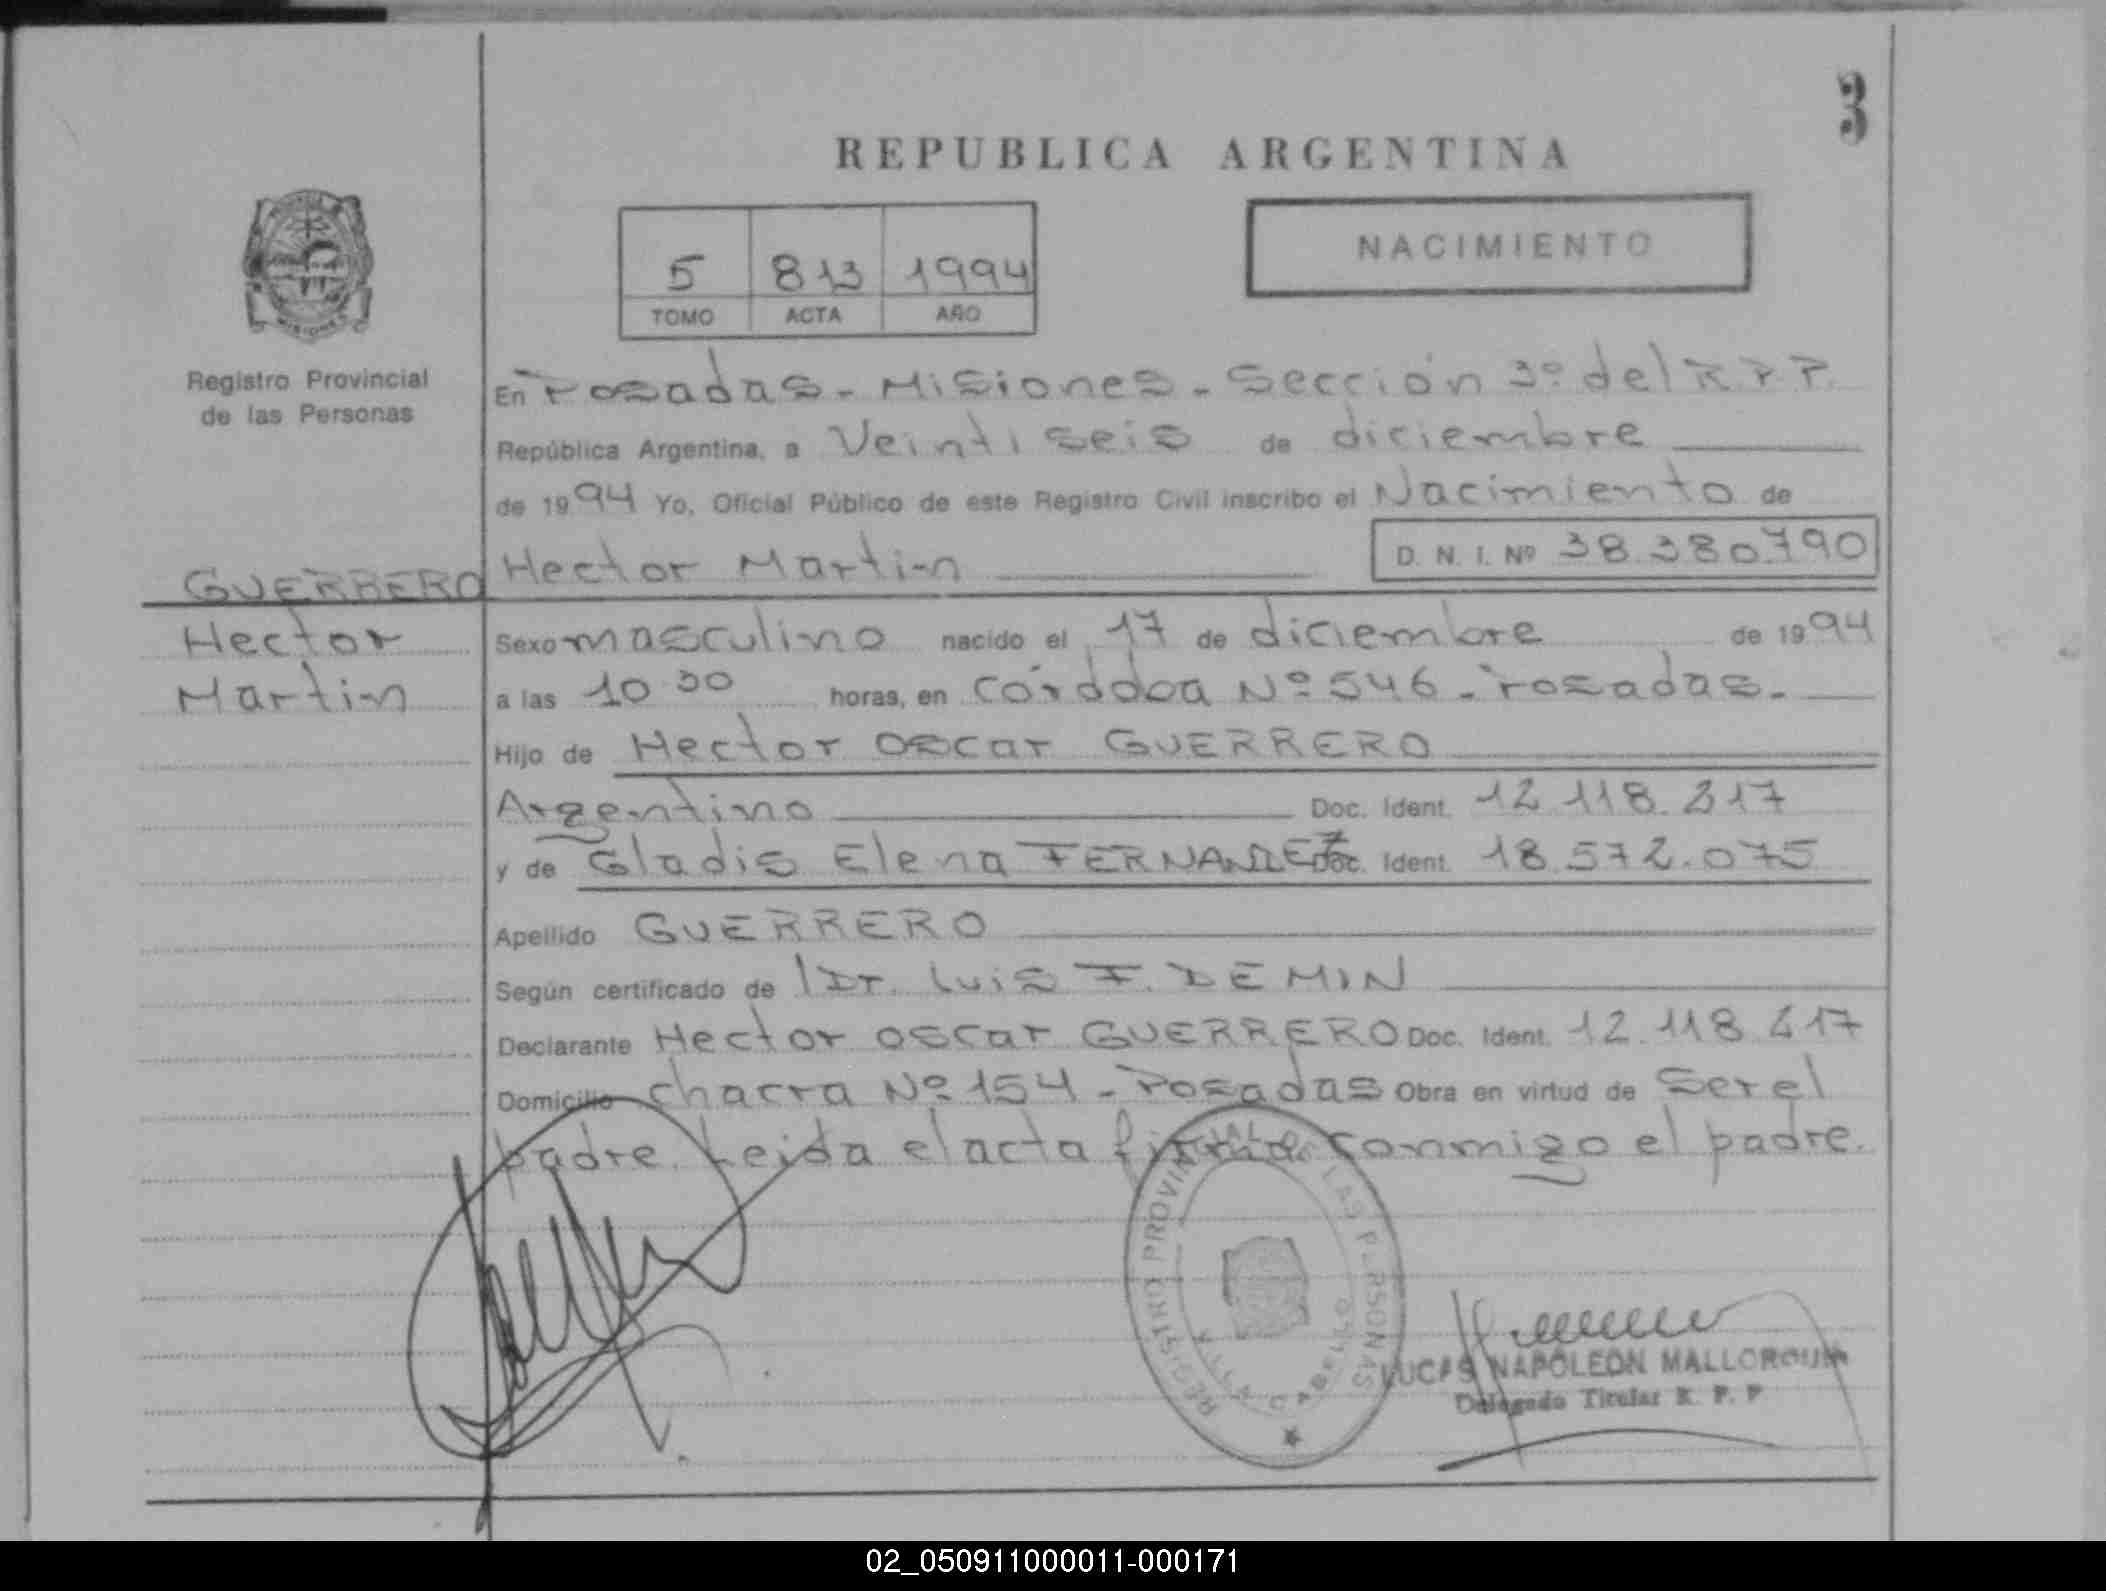 3
REPUBLICA ARGENTINA
5 813 1994
TOMO ACTA AÑO
NACIMIENTO
MISIONES
Registro Provincial
de las Personas
En Posadas - Misiones - Sección 3º del R.P.P.
República Argentina, a Veintiseis de diciembre
de 1994 Yo, Oficial Público de este Registro Civil inscribo el Nacimiento de
GUERRERO Hector Martin D. N. I. Nº 38.380790
Hector
Martin
Sexo masculino nacido el 17 de diciembre de 1994
a las 10 30 horas, en Córdoba Nº 546 - Posadas.
Hijo de Hector Oscar GUERRERO
Argentino Doc. Ident. 12.118.217
y de Gladis Elena FERNANDEZ Doc. Ident. 18.572.075
Apellido GUERRERO
Según certificado de Dr. Luis F. DEMIN
Declarante Hector Oscar GUERRERO Doc. Ident. 12.118.217
Domicilio chacra Nº 154 - Posadas Obra en virtud de ser el
padre. Leida el acta firma conmigo el padre.
REGISTRO PROVINCIAL DE LAS PERSONAS
VILLA CABELLO
LUCAS NAPOLEON MALLORQUIN
Delegado Titular R. P. P
02_050911000011-000171